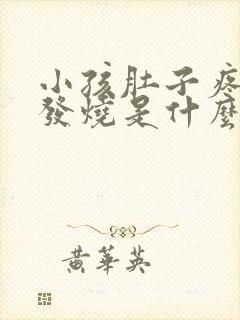 小孩肚子疼
發燒是什麼
黃華英